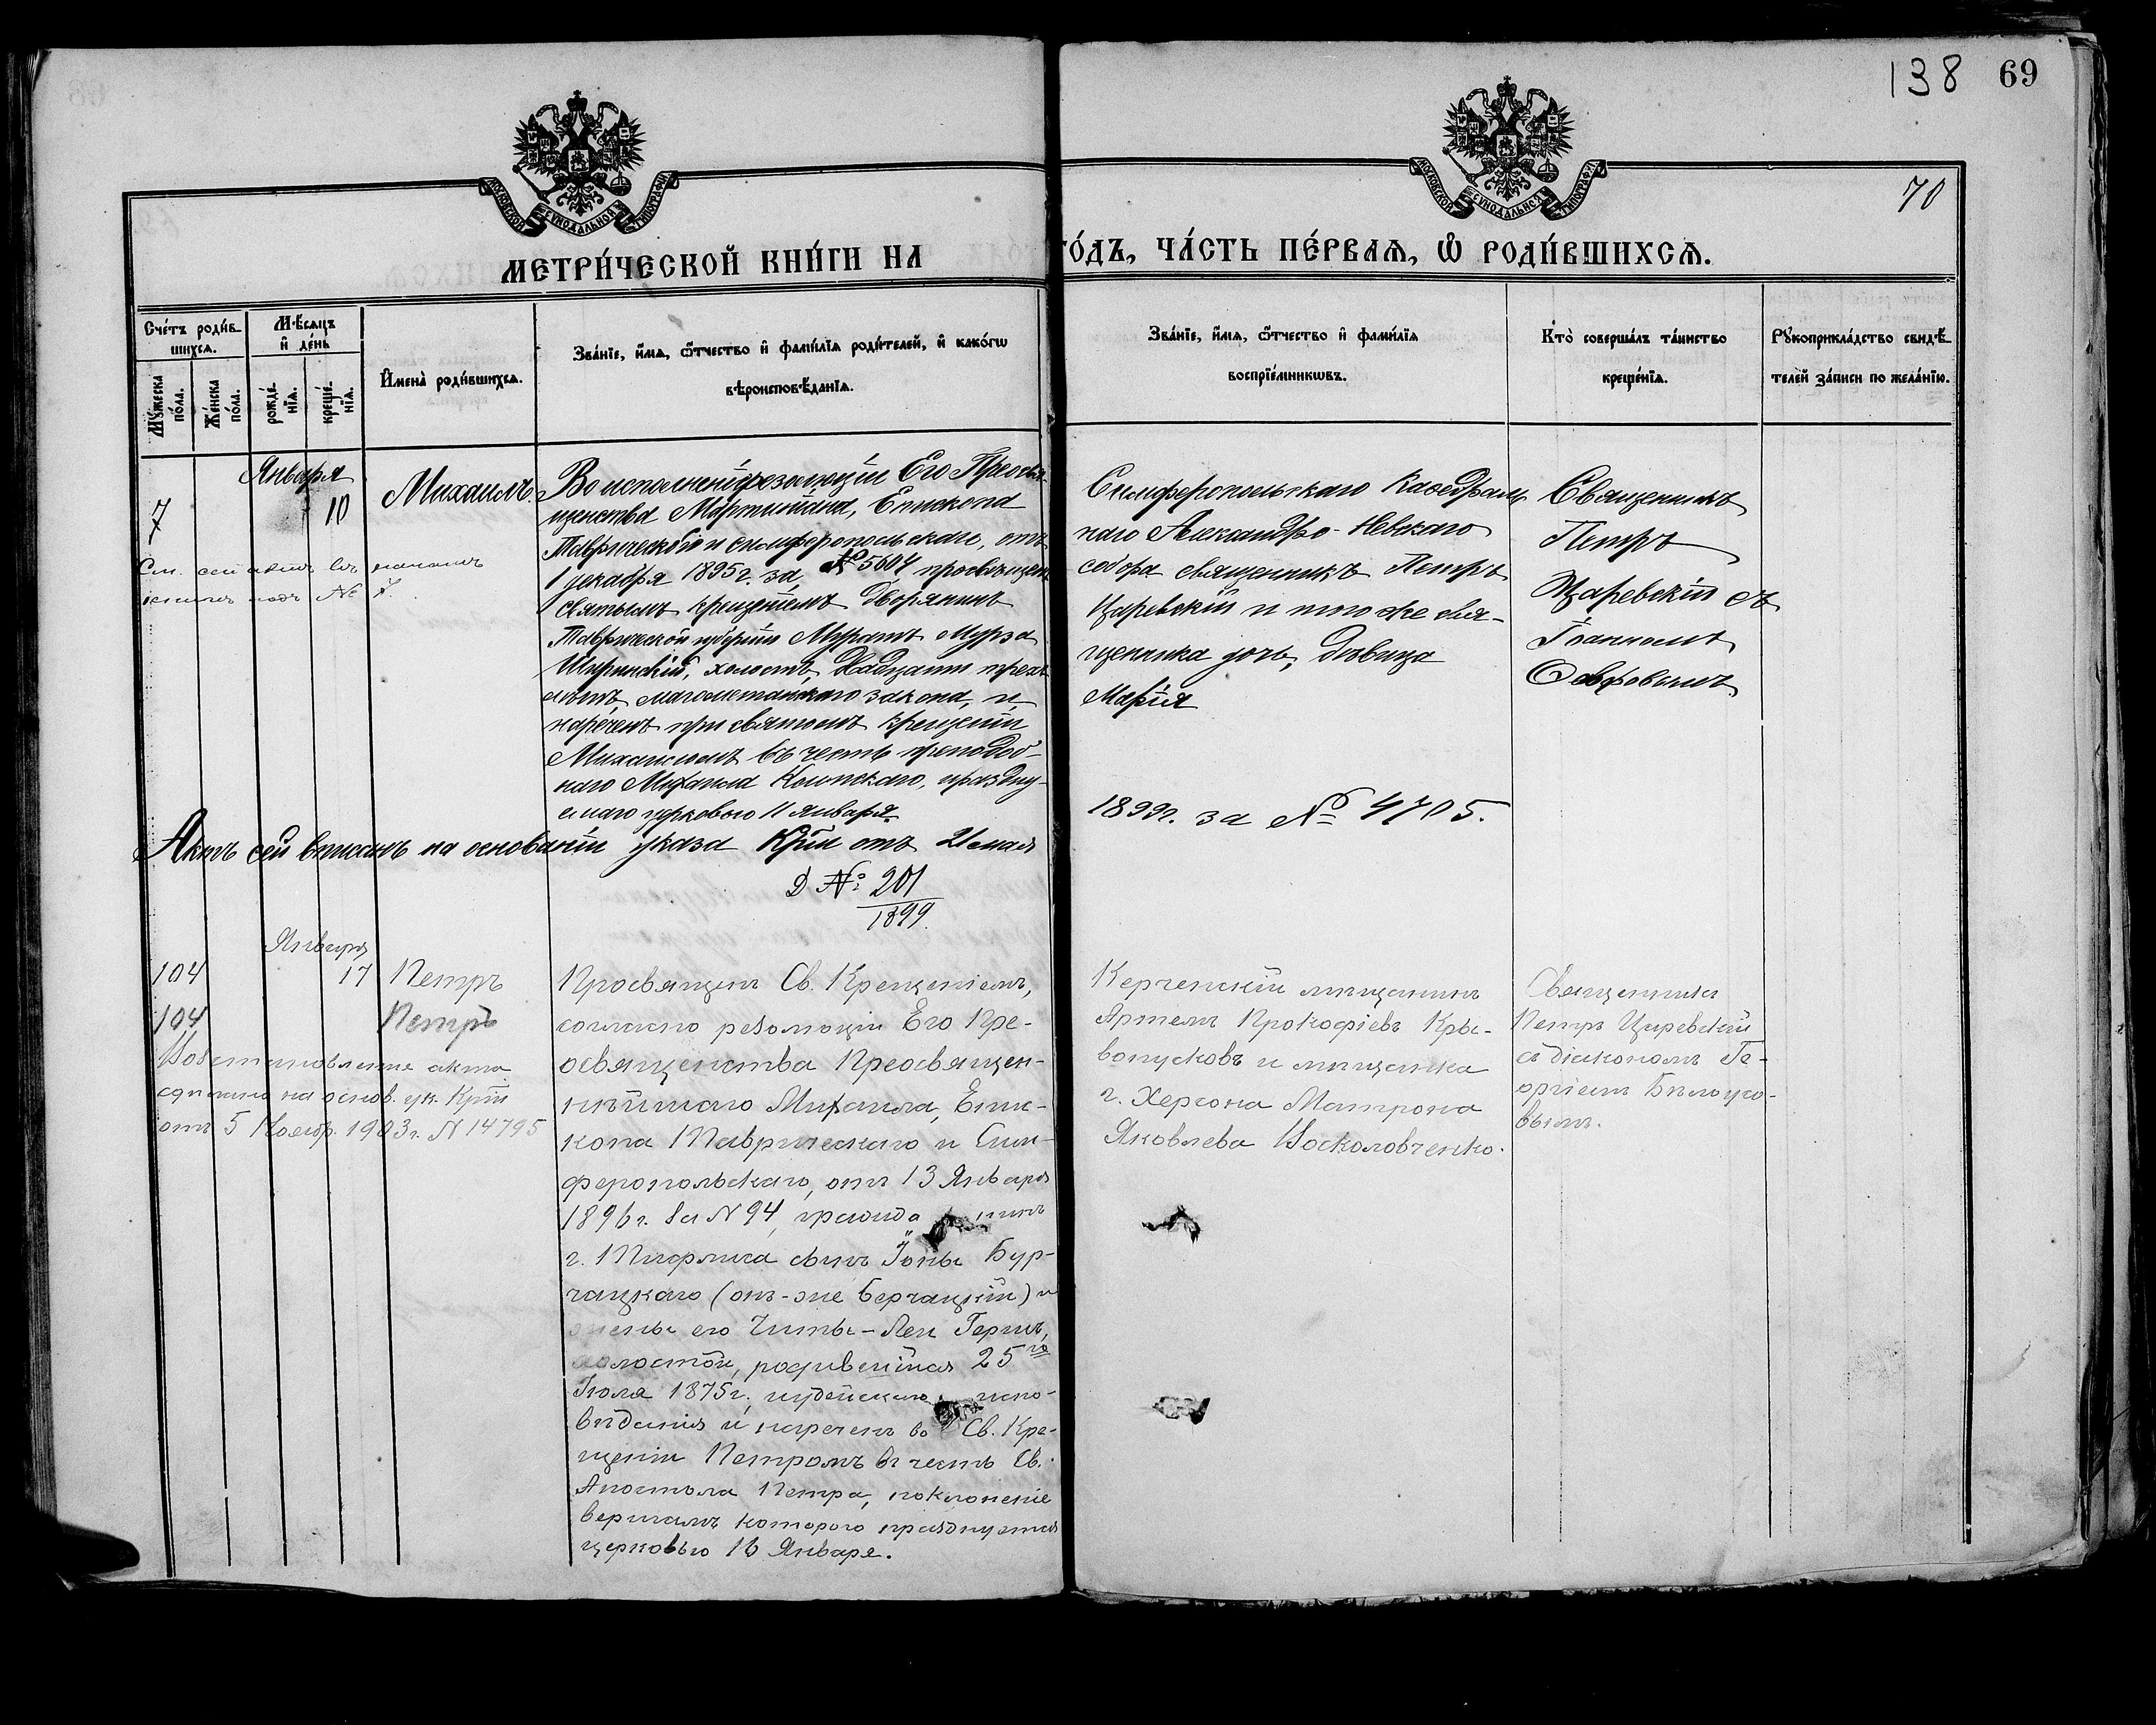 138 69
70
МОСКОВСКОЙ СѴНОДАЛЬНОЙ ТИПОГРАФІИ
МОСКОВСКОЙ СѴНОДАЛЬНОЙ ТИПОГРАФІИ
МЕТРИ́ЧЕСКОЙ КНИ́ГИ НА ГО́ДЪ, ЧА́СТЬ ПЕ́РВАѦ, Ѽ РОДИ́ВШИХСѦ.
Сче́тъ роди́в-
шихсѧ.
Мꙋ́жеска по́ла.
Же́нска по́ла.
Мѣ́сѧцъ
и҆ де́нь
рожде́нїѧ.
креще́нїѧ.
И҆мена̀ роди́вшихсѧ.
Зва́нїе, и҆́мѧ, ѻ҆́тчество и҆ фами́лїѧ роди́телей, и҆ како́гѡ
вѣроисповѣ́данїѧ.
Зва́нїе, и҆́мѧ, ѻ҆́тчество и҆ фами́лїѧ
воспрїе́мникѡвъ.
Кто̀ соверша́лъ та́инство
креще́нїѧ.
Рꙋкоприкла́дство свидѣ́-
телей за́писи по жела́нїю.
Января
7 10 Михаилъ.
См. сей актъ въ началѣ
книги подъ № 7.
Во исполненіи резолюціи Его Преосвя-
щенства Мартиніана, Епископа
Таврическаго и Симферопольскаго, отъ
1 декабря 1895 г. за № 5604, просвѣщенъ
святымъ крещеніемъ дворянинъ
Таврической губерніи Муратъ Мурза
Ширинскій, холостъ, двадцати трехъ
лѣтъ, магометанскаго закона, и
нареченъ при святомъ крещеніи
Михаиломъ въ честь преподоб-
наго Михаила Клопскаго, праздну-
емаго церковью 11 января.
Симферопольскаго Каѳедраль
наго Александро-Невскаго
собора священникъ Петръ
Царевскій и того же свя-
щенника дочь, дѣвица
Марія
Священникъ
Петръ
Царевскій съ
Іоанномъ
Актъ сей вписанъ на основаніи указа Кріи отъ 21 мая
1899 г. за № 4705.
Д № 201
1899.
Января
104 17 Петръ
104 Петръ
Возстановленіе акта
сдѣлано на основ. ук. Кріи
отъ 5 Ноябр. 1903 г. N 14795
Просвѣщенъ Св. Крещеніемъ,
согласно резолюціи Его Пре-
освященства Преосвящен-
нѣйшаго Михаила, Епис-
копа Таврическаго и Сим-
феропольскаго, отъ 13 Января
1896 г. за N 94,
г. Тифлиса сынъ Іоны Бур-
чацкаго (онъ-же Берчацкій) и
жены его Читы-Леи Герш,
холостой, родившійся 25го
Іюля 1875 г., іудейскаго испо-
вѣданія и нареченъ во Св. Кре-
щеніи Петромъ въ честь Св.
Апостола Петра, поклоненіе
веригамъ котораго празднуется
церковью 16 Января.
Керченскій мѣщанинъ
Артемъ Прокофіевъ Кры-
вопусковъ и мѣщанка
г. Херсона Матрона
Яковлева Носколовченко.
Священникъ
Петръ Царевскій
съ діакономъ Ге-
оргіемъ Бѣлоусо-
вымъ.